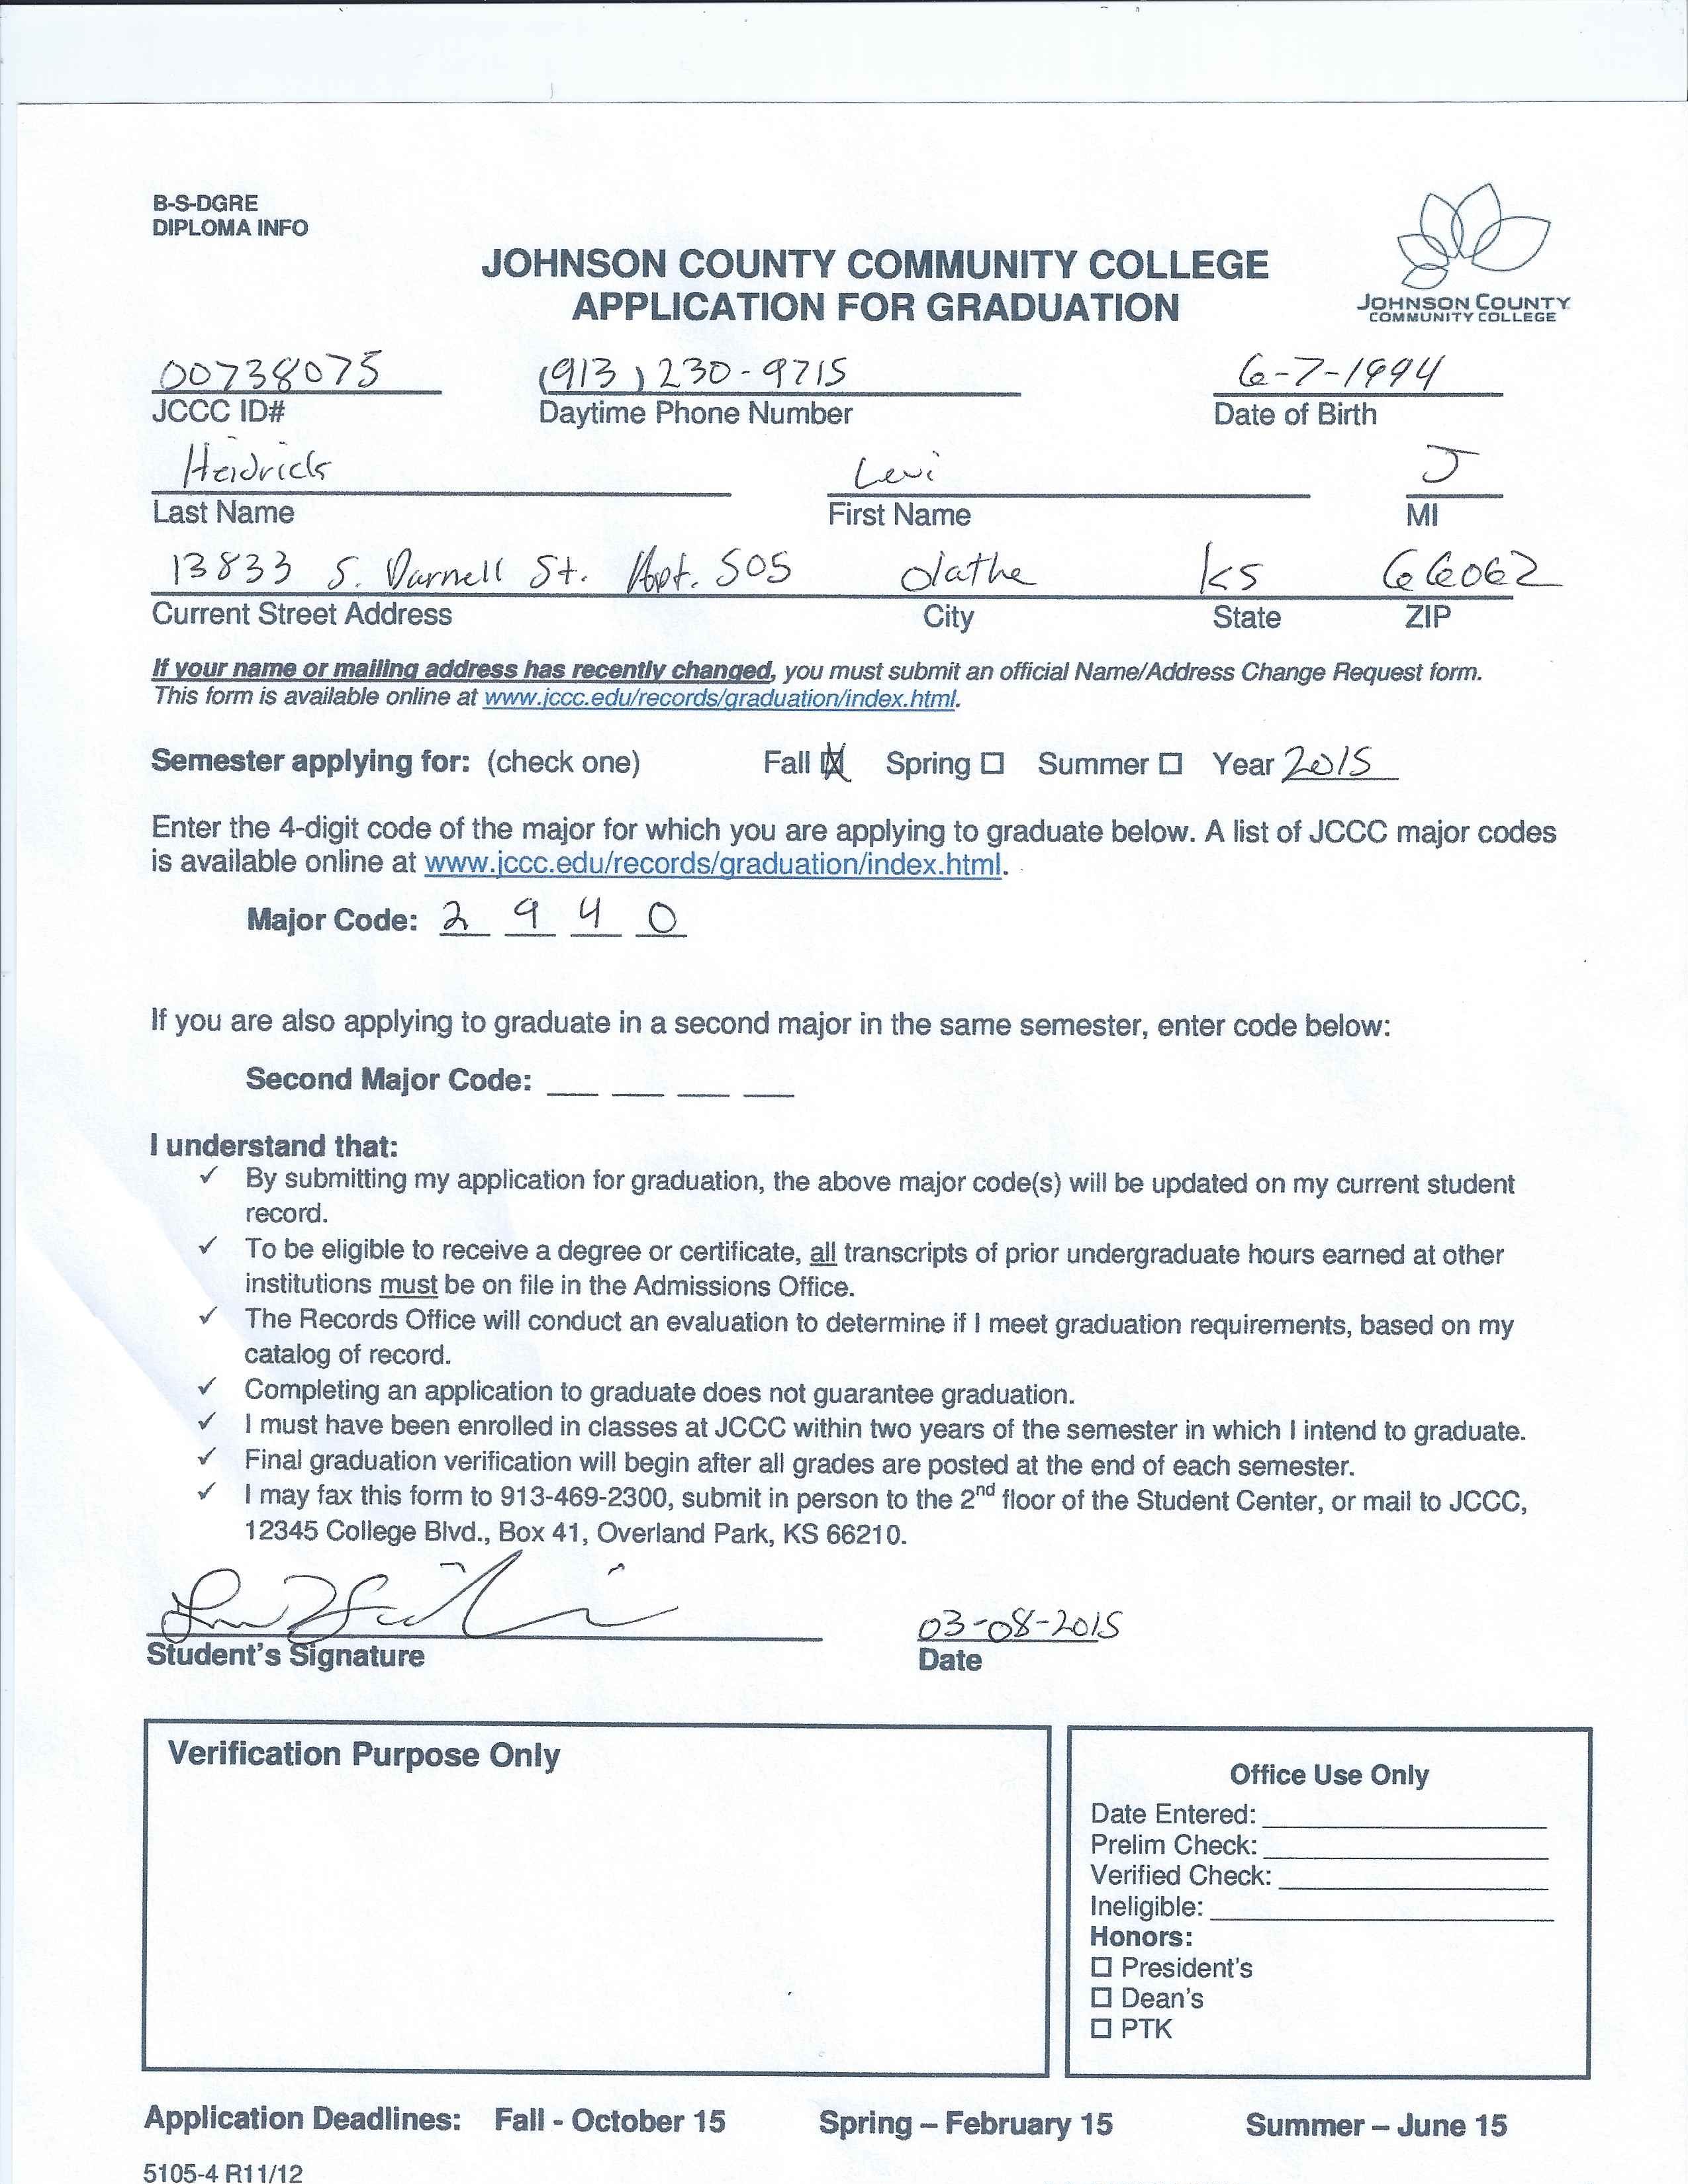 B-S-DGRE
DIPLOMA INFO
JOHNSON COUNTY COMMUNITY COLLEGE
APPLICATION FOR GRADUATION
JOHNSON COUNTY
COMMUNITY COLLEGE
00738075 (913) 230-9715 6-7-1994
JCCC ID# Daytime Phone Number Date of Birth
Heidrick Levi J
Last Name First Name MI
13833 S. Darnell St. Apt. 505 Olathe KS 66062
Current Street Address City State ZIP
If your name or mailing address has recently changed, you must submit an official Name/Address Change Request form.
This form is available online at www.jccc.edu/records/graduation/index.html.
Semester applying for: (check one) Fall ☒ Spring ☐ Summer ☐ Year 2015
Enter the 4-digit code of the major for which you are applying to graduate below. A list of JCCC major codes
is available online at www.jccc.edu/records/graduation/index.html.
Major Code: 2 9 4 0
If you are also applying to graduate in a second major in the same semester, enter code below:
Second Major Code: __ __ __ __
I understand that:
✓ By submitting my application for graduation, the above major code(s) will be updated on my current student
record.
✓ To be eligible to receive a degree or certificate, all transcripts of prior undergraduate hours earned at other
institutions must be on file in the Admissions Office.
✓ The Records Office will conduct an evaluation to determine if I meet graduation requirements, based on my
catalog of record.
✓ Completing an application to graduate does not guarantee graduation.
✓ I must have been enrolled in classes at JCCC within two years of the semester in which I intend to graduate.
✓ Final graduation verification will begin after all grades are posted at the end of each semester.
✓ I may fax this form to 913-469-2300, submit in person to the 2nd floor of the Student Center, or mail to JCCC,
12345 College Blvd., Box 41, Overland Park, KS 66210.
03-08-2015
Student's Signature Date
Verification Purpose Only
Office Use Only
Date Entered:
Prelim Check:
Verified Check:
Ineligible:
Honors:
☐ President's
☐ Dean's
☐ PTK
Application Deadlines: Fall - October 15 Spring – February 15 Summer – June 15
5105-4 R11/12